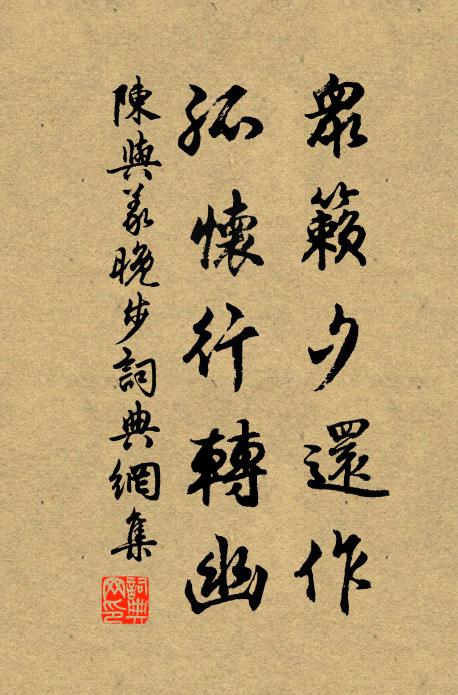 眾籟夕還作
孤懷行轉幽
陳與義晚步詞典網集
詞典網印